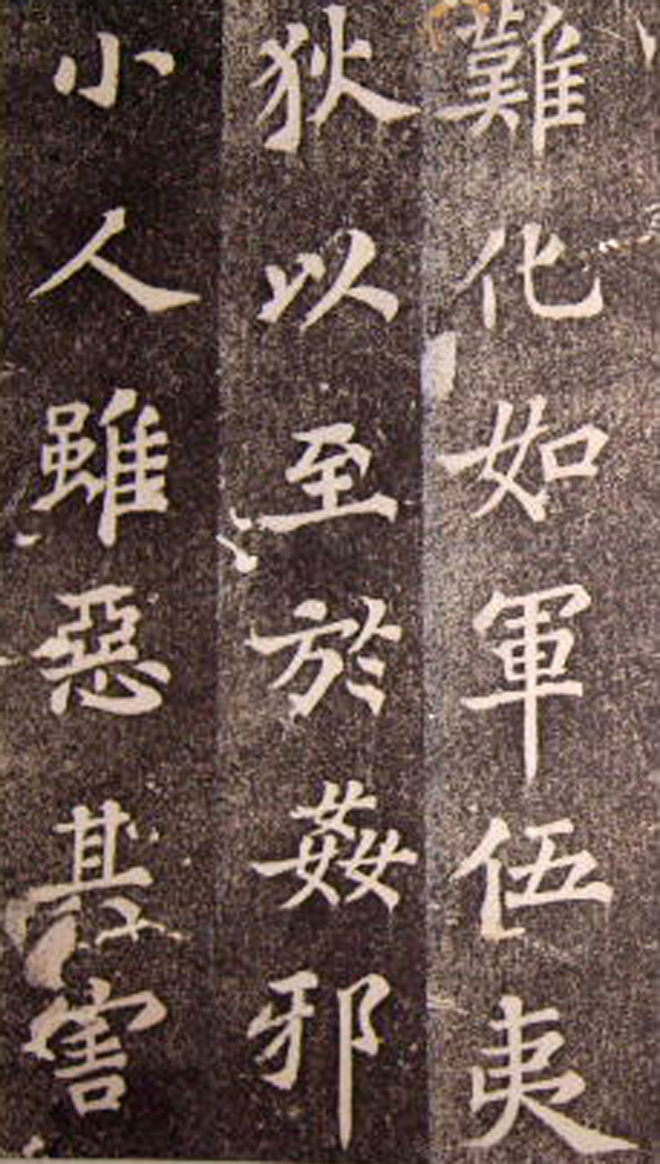 難化如軍伍夷
狄以至於姦邪
小人雖惡其害